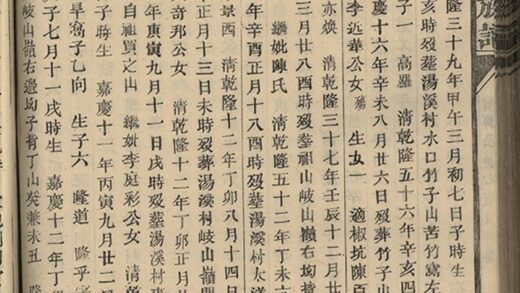 族譜
隆三十九年甲午三月初七日子時生
亥時歿塟湯溪村水口竹子山苦竹窩左
子一 高羅 清乾隆五十六年辛亥四
慶十六年辛未八月廿六日歿葬竹子山
李近華公女 生女一 適椒坑陳百
亦煥 清乾隆三十七年壬辰十二月
三月廿八酉時歿塟祖山岐山嶺右坳背
繼妣陳氏 清乾隆五十二年丁未六
年辛酉正月十八酉時歿塟湯溪村大洋
景西 清乾隆十二年丁卯八月十四日
年正月十三日未時歿葬湯溪村岐山嶺
奇邦公女 清乾隆十二年丁卯正月
年庚寅九月十一日戌時歿塟湯溪村
自祖買之山 繼妣李庭彩公女 清
子時生 嘉慶十一年丙寅九月廿二
旱窩子乙向 生子六 隆道 隆孚
子七月十一戌時生 嘉慶十二年丁
岐山嶺右邊坳子背丁山癸兼未丑 隆